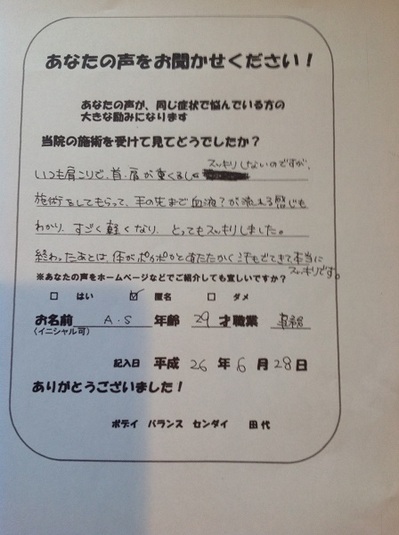 あなたの声をお聞かせください！
あなたの声が、同じ症状で悩んでいる方の
大きな励みになります
当院の施術を受けて見てどうでしたか？
いつも肩こりで、首、肩が重くるしく スッキリしないのですが、
施術をしてもらって、手の先まで血液？が流れる感じも
わかり、すごく軽くなり、とってもスッキリしました。
終わったあとは、体がポカポカとあたたかく汗もでてきて本当に
スッキリです。
※あなたの声をホームページなどでご紹介しても宜しいですか？
□ はい ☑ 匿名 □ ダメ
お名前 A.S 年齢 29 才職業 事務
(イニシャル可)
記入日 平成 26 年 6 月 28 日
ありがとうございました！
ボディ バランス センダイ 田代